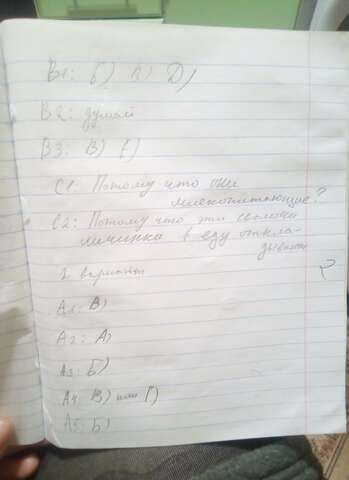 В1: Б) В) Д)
В2: думай
В3: В) Е)
С1 Потому что они
млекопитающие?
С2: Потому что эти сволочи
личинка в еду откла-
дывают
2 вариант
?
А1: В)
А2: А)
А3: Б)
А4: В) или Г)
А5: Б)